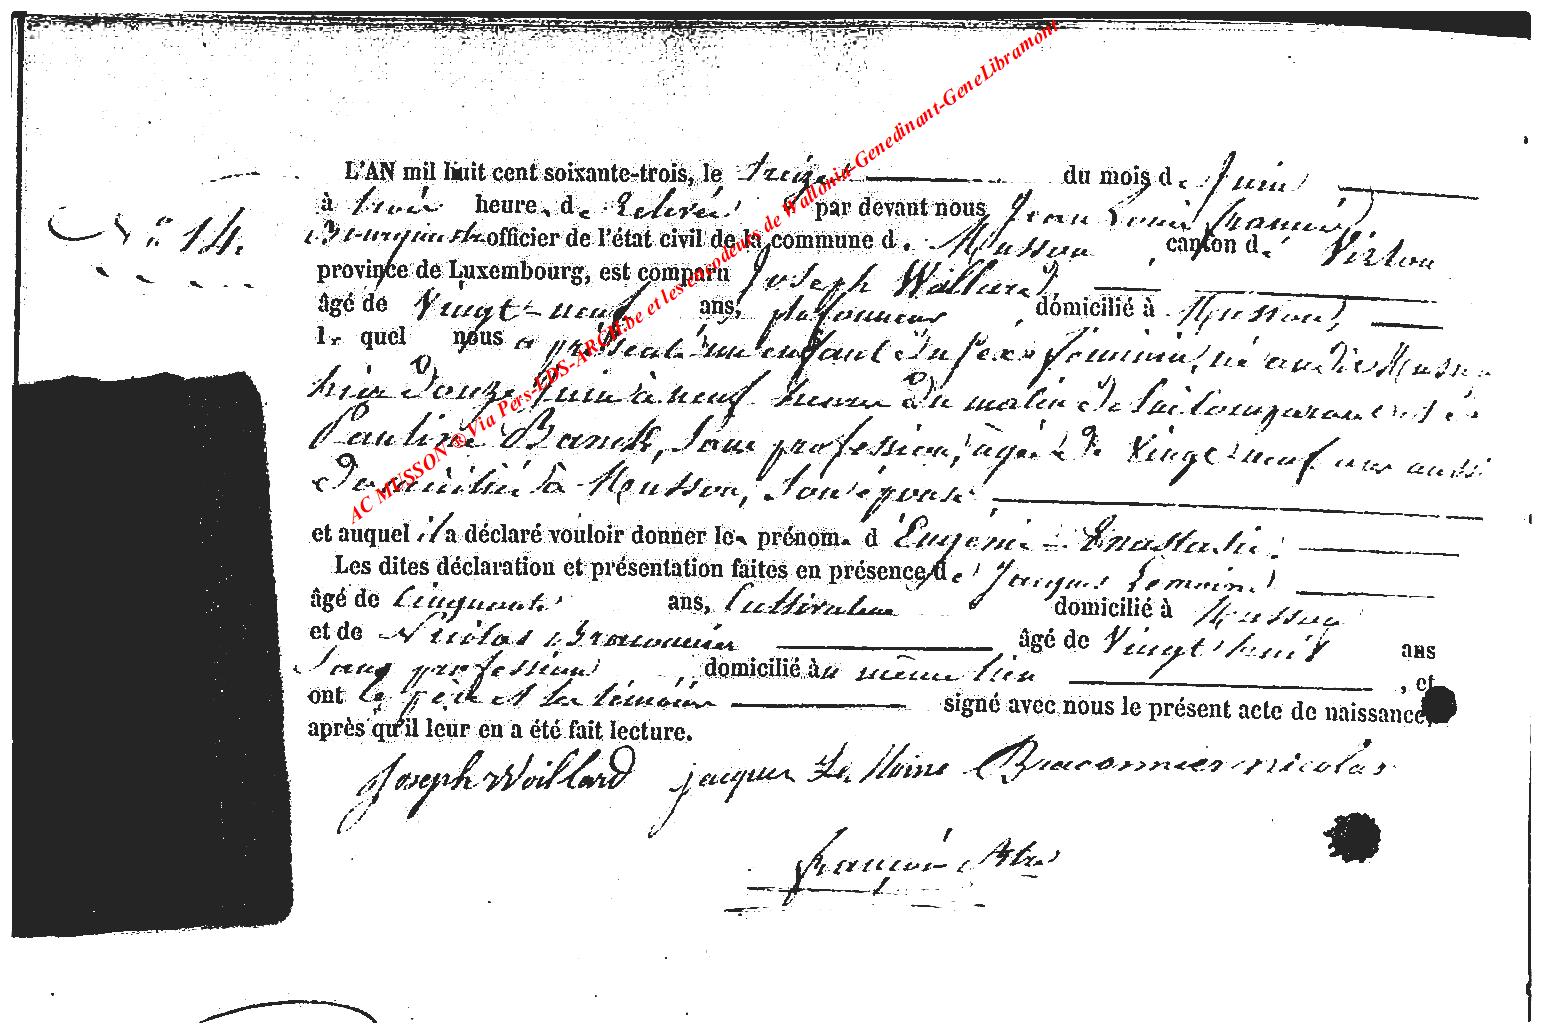 L'AN mil huit cent soixante-trois, le treize du mois de Juin
N° 14.
à trois heures de relevée par devant nous Jean Louis François
officier de l'état civil de la commune de Musson, canton de Virton
province de Luxembourg, est comparu Joseph Woillard
âgé de Vingt-neuf ans, plafonneur domicilié à Musson,
lequel nous a présenté un enfant du sexe féminin, né audit Musson
hier douze Juin à neuf heures du matin de lui comparant et de
Pauline, sans profession, âgée de Vingt-neuf ans aussi
domiciliée à Musson, son épouse
et auquel il a déclaré vouloir donner les prénoms d'Eugénie
Les dites déclaration et présentation faites en présence de Jacques Lemoine
âgé de Cinquante ans, Cultivateur domicilié à Musson
et de Nicolas Braconnier âgé de Vingt huit ans
sans profession domicilié au même lieu, et
ont le père et les témoins signé avec nous le présent acte de naissance,
après qu'il leur en a été fait lecture.
Joseph Woillard jacques Le Moine Braconnier nicolas
françois
AC MUSSON ® Via Pers-LDS-ARCH.be et les encodeurs de Wallonia-Genedinant-GeneLibramont